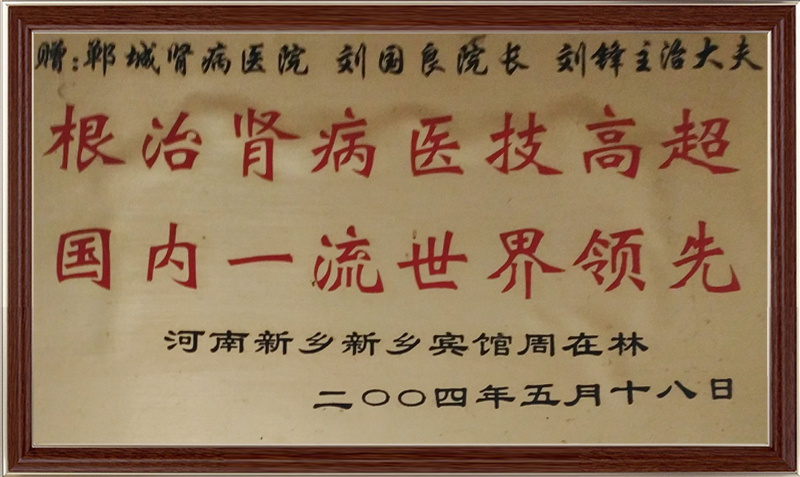 赠:郸城肾病医院 刘国良院长 刘锋主治大夫
根治肾病医技高超
国内一流世界领先
河南新乡新乡宾馆周在林
二〇〇四年五月十八日